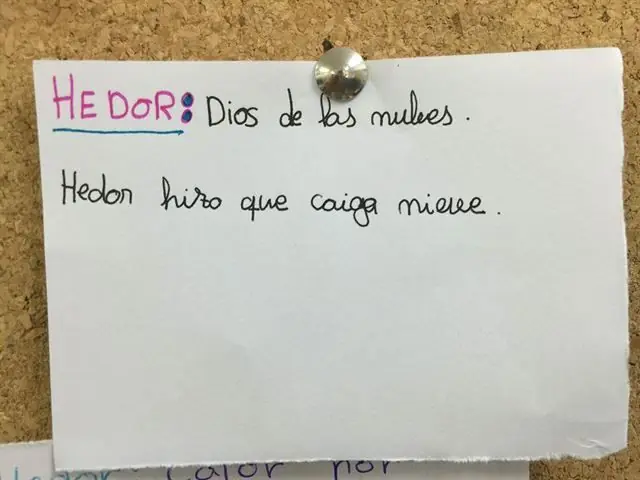 HEDOR: Dios de las nubes.
Hedor hizo que caiga nieve.
calor por